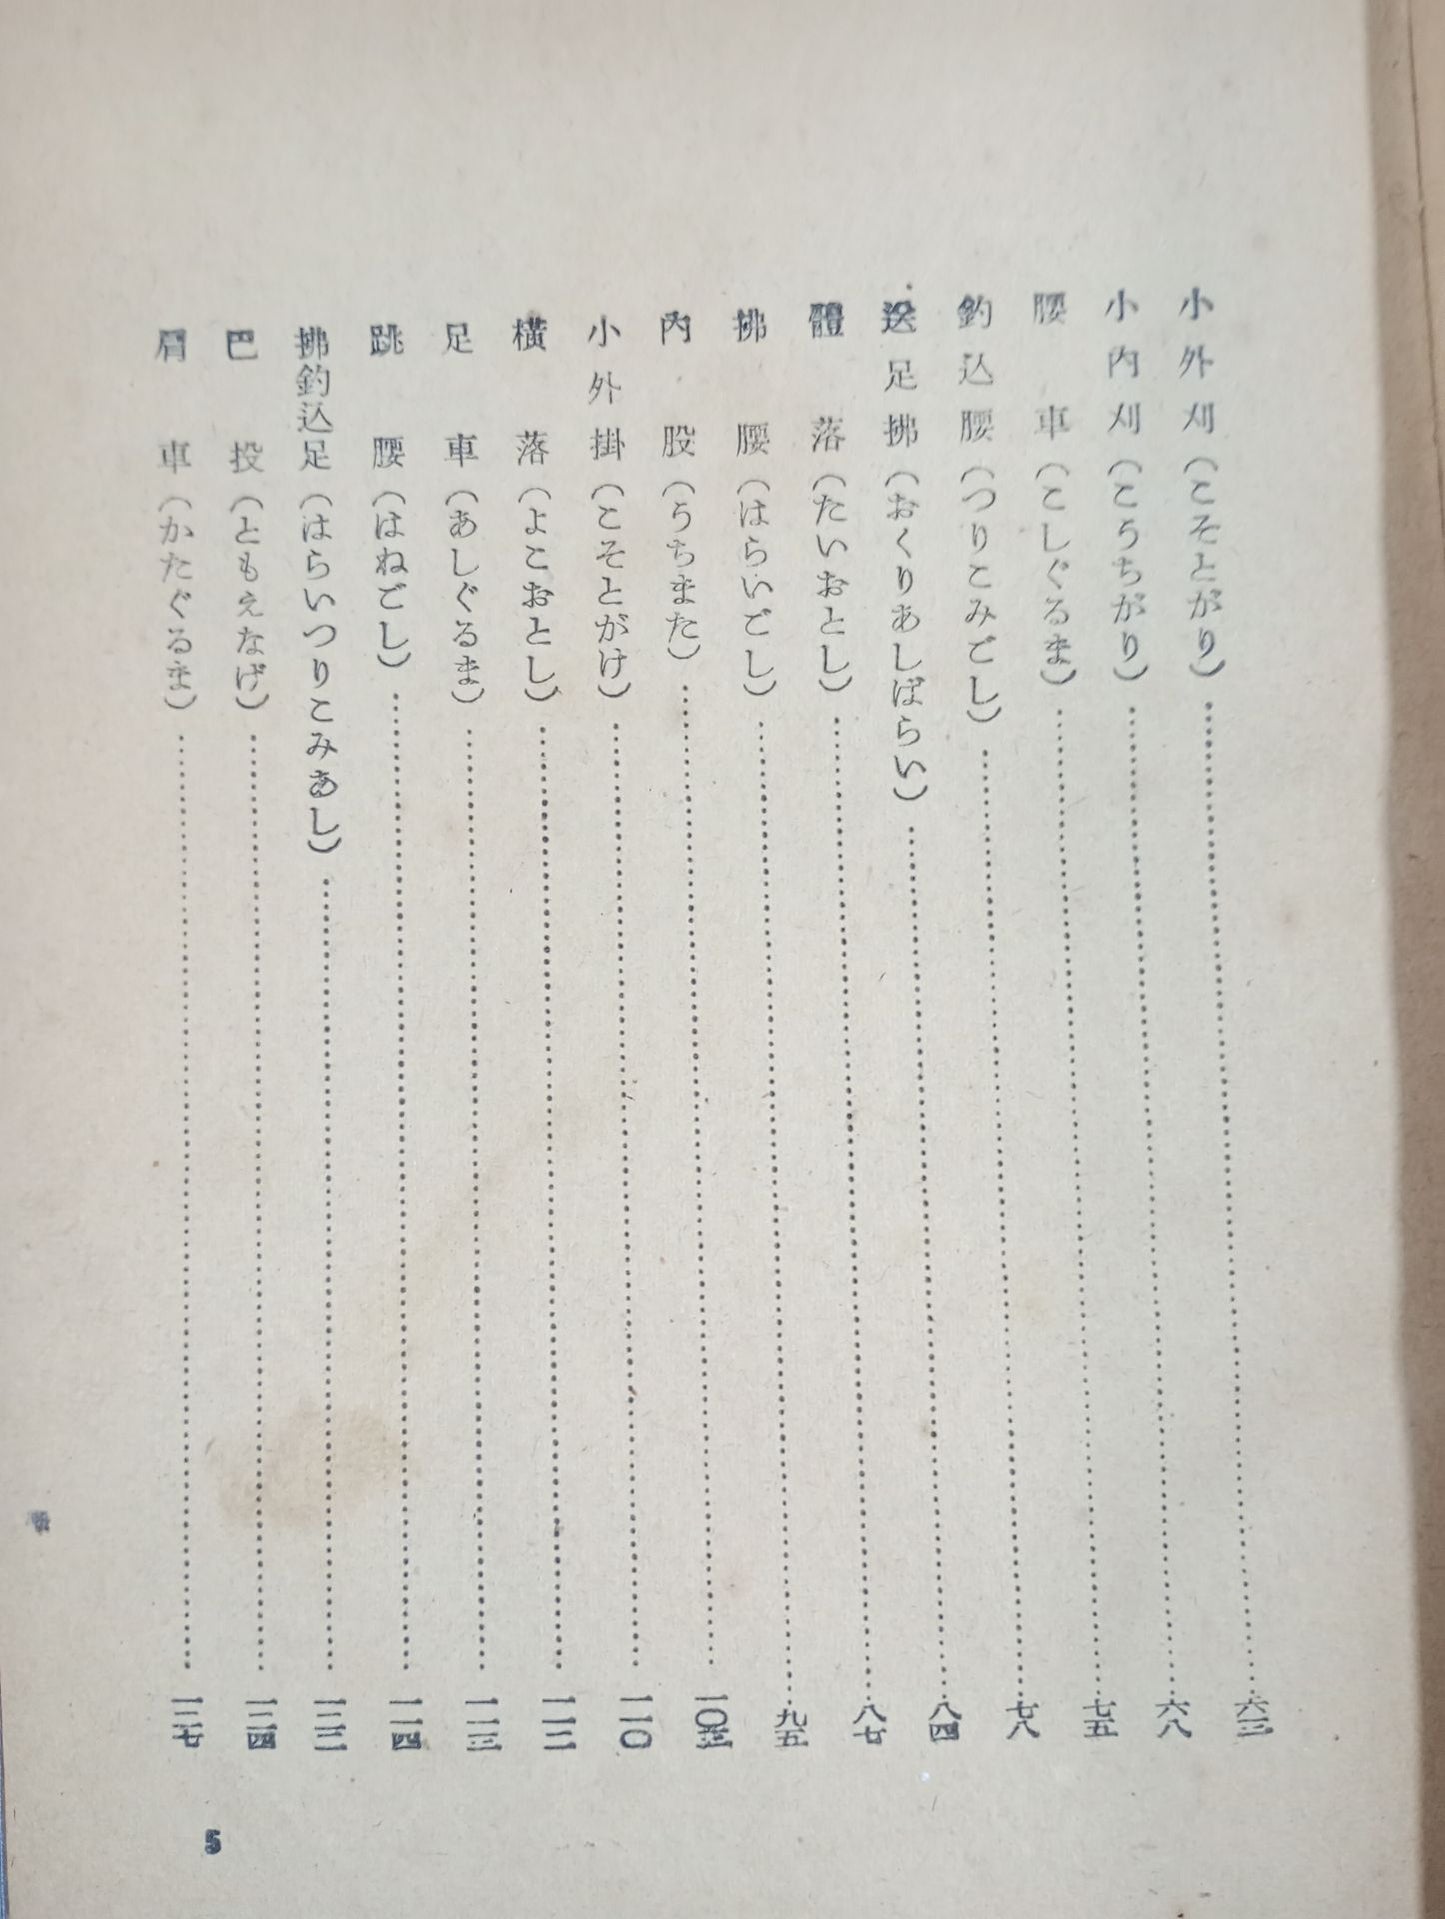 小外刈(こそとがり)……六三
小内刈(こうちがり)……六八
腰車(こしぐるま)……七五
釣込腰(つりこみごし)……七八
送足拂(おくりあしばらい)……八四
體落(たいおとし)……八七
拂腰(はらいごし)……九五
內股(うちまた)……一〇三
小外掛(こそとがけ)……一一〇
橫落(よこおとし)……一一二
足車(あしぐるま)……一一三
跳腰(はねごし)……一一四
拂釣込足(はらいつりこみあし)……一二二
巴投(ともえなげ)……一二四
肩車(かたぐるま)……一二七
5